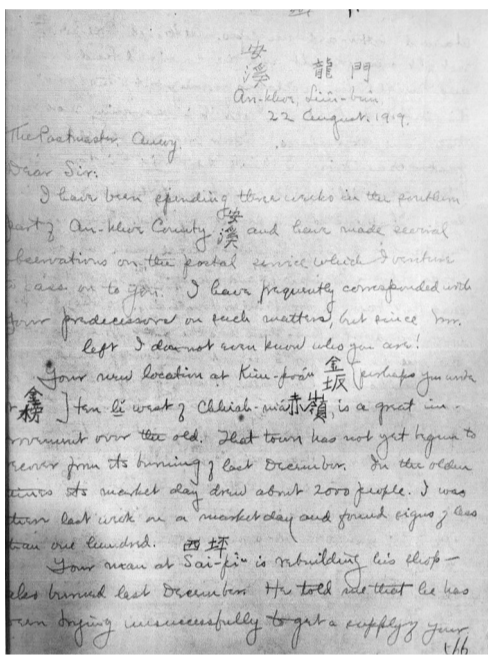 安溪 龍門
An-khoe, Liông-bûn
22 August. 1919.
The Postmaster, Amoy.
Dear Sir:
I have been spending three weeks in the southern
part of An-khoe County 安溪 and have made several
observations on the postal service which I venture
to pass on to you. I have frequently corresponded with
your predecessors on such matters, but since Mr.
left I do not even know who you are!
Your new location at Kim- 金坂 [perhaps you
金榜] ten li west of Chhiah-niá 赤嶺, is a great im-
provement over the old. That town has not yet begun to
recover from its burning of last December. In the olden
times its market day drew about 2000 people. I was
there last week on a market day and found signs of less
than one hundred. 西坪
Your man at Sai-piⁿ is rebuilding his shop —
also burned last December. He told me that he has
been trying unsuccessfully to get a supply of your